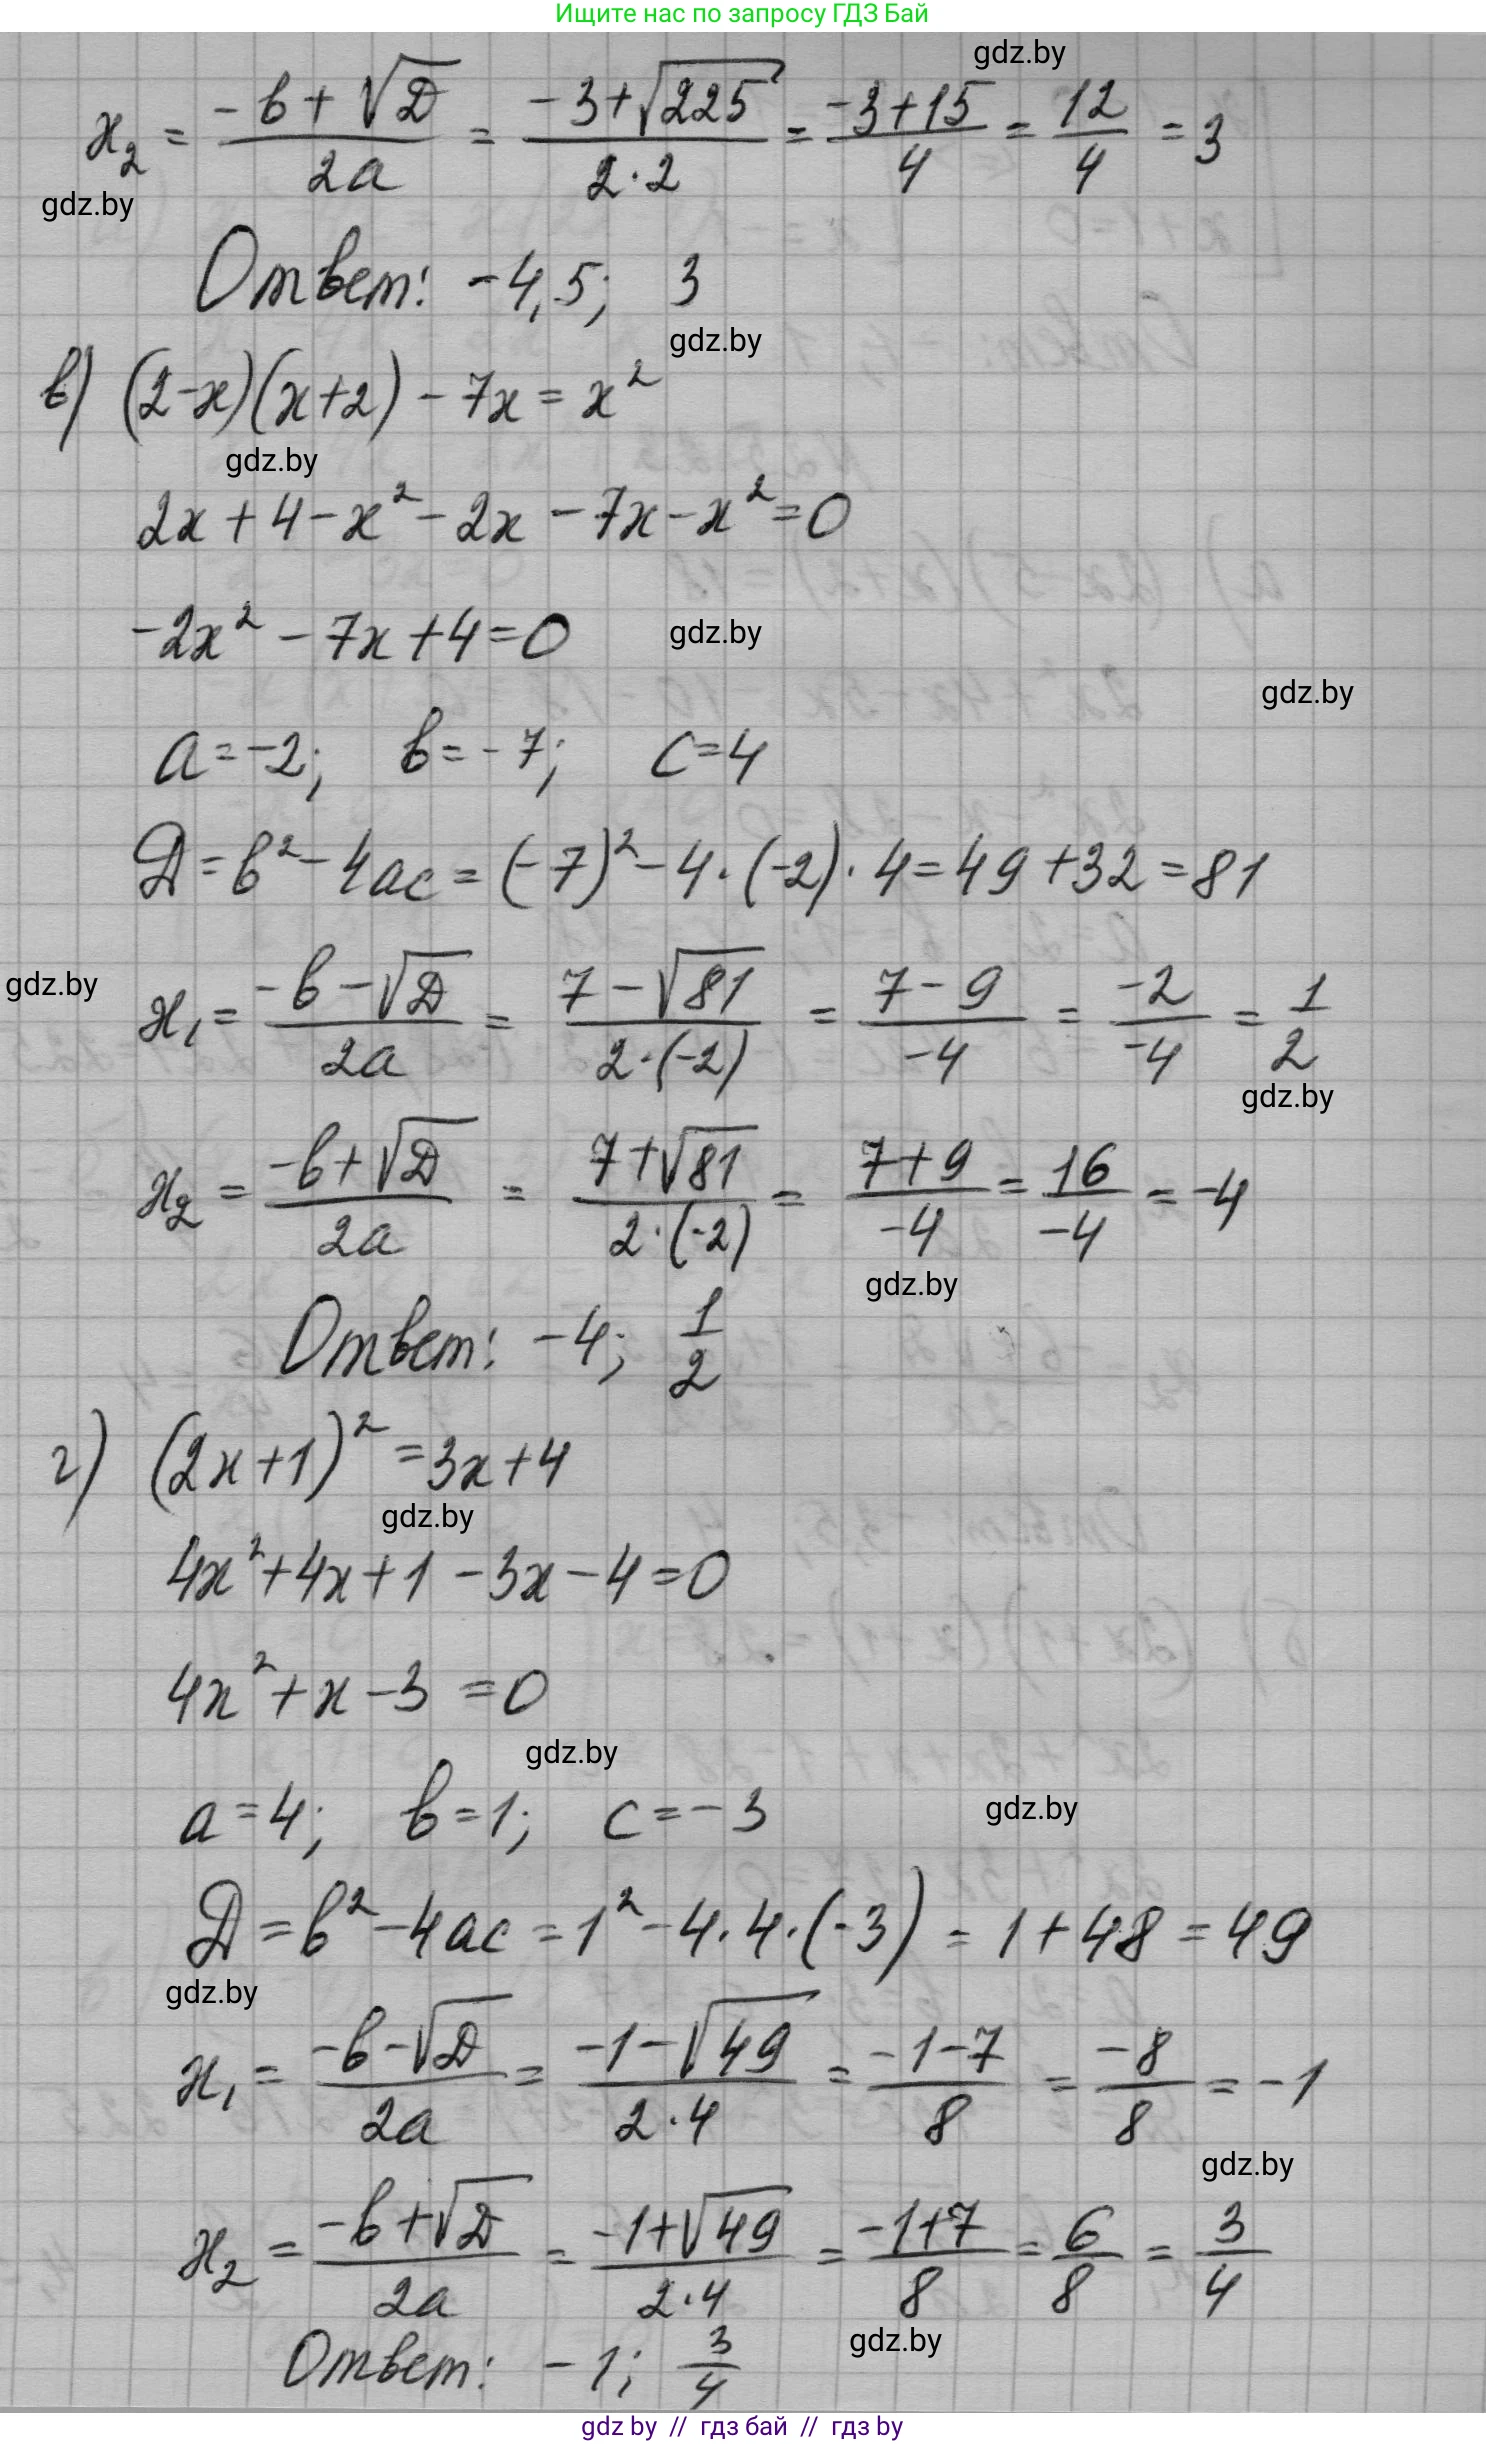 Ищите нас по запросу ГДЗ Бай
gdz.by
x₂ = (-b + √D)/(2a) = (-3+√225)/(2·2) = (-3+15)/4 = 12/4 = 3
gdz.by
Ответ: -4,5; 3
gdz.by
в) (2-x)(x+2) - 7x = x²
gdz.by
2x + 4 - x² - 2x - 7x - x² = 0
-2x² - 7x + 4 = 0
gdz.by
gdz.by
a = -2; b = -7; c = 4
D = b² - 4ac = (-7)² - 4·(-2)·4 = 49 + 32 = 81
gdz.by
x₁ = (-b - √D)/(2a) = (7 - √81)/(2·(-2)) = (7 - 9)/(-4) = (-2)/(-4) = 1/2
gdz.by
x₂ = (-b + √D)/(2a) = (7 + √81)/(2·(-2)) = (7+9)/(-4) = 16/(-4) = -4
gdz.by
Ответ: -4; 1/2
г) (2x+1)² = 3x+4
gdz.by
4x² + 4x + 1 - 3x - 4 = 0
4x² + x - 3 = 0
gdz.by
gdz.by
a = 4; b = 1; c = -3
D = b² - 4ac = 1² - 4·4·(-3) = 1 + 48 = 49
gdz.by
x₁ = (-b - √D)/(2a) = (-1 - √49)/(2·4) = (-1-7)/8 = (-8)/8 = -1
gdz.by
x₂ = (-b + √D)/(2a) = (-1+√49)/(2·4) = (-1+7)/8 = 6/8 = 3/4
gdz.by
Ответ: -1; 3/4
gdz by // гдз бай // гдз by